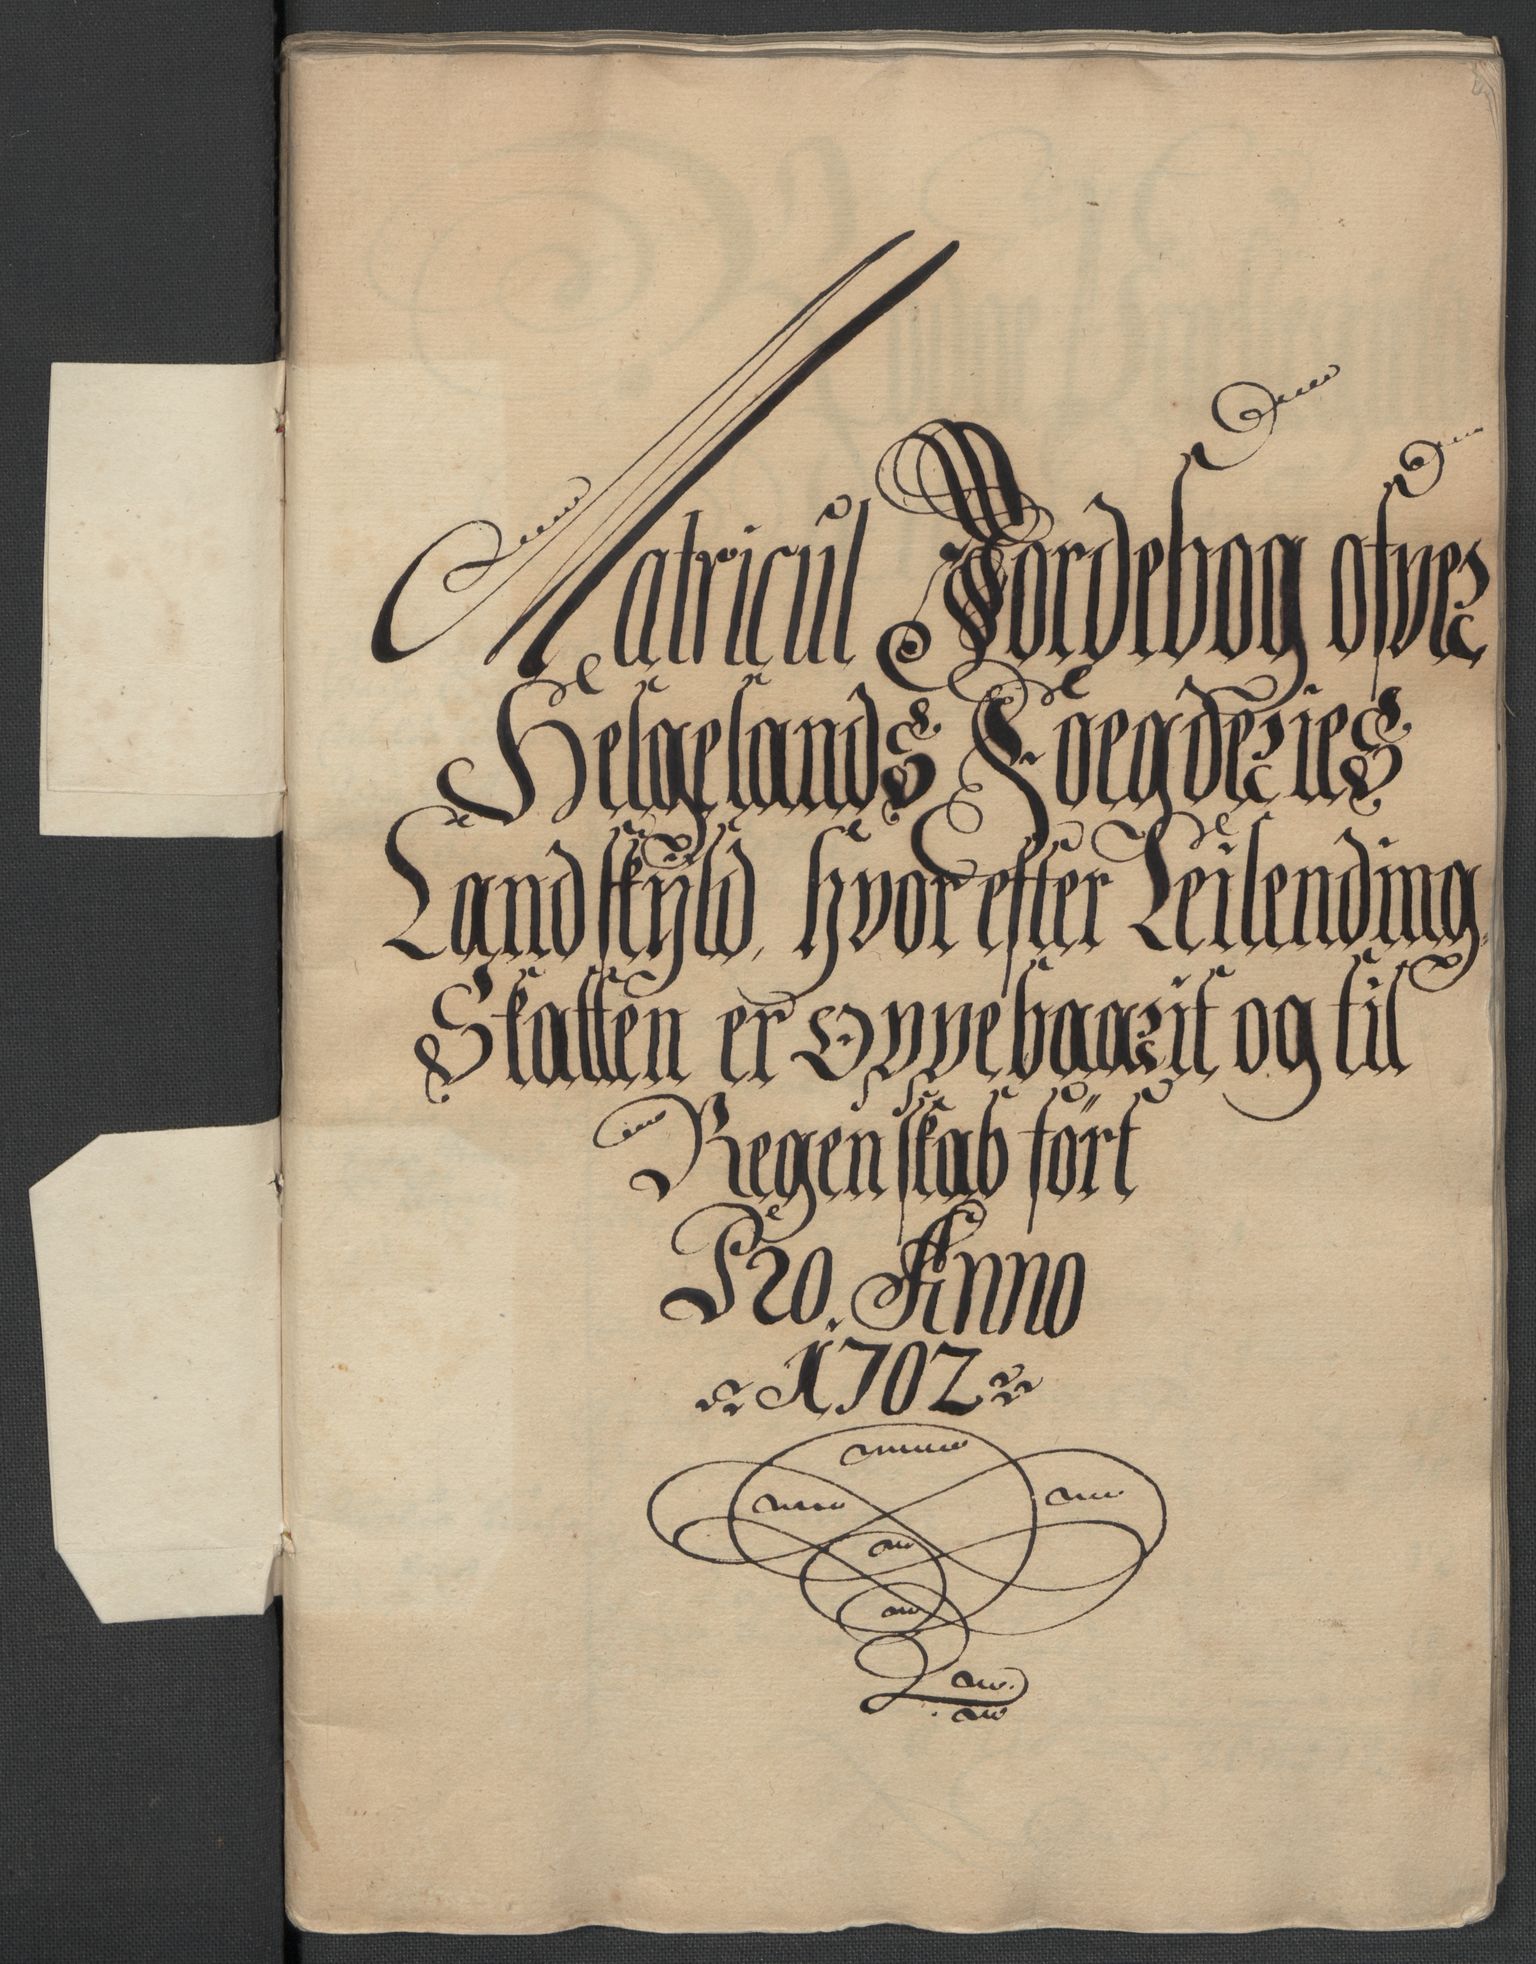 Matricul Jordebog ofver
Helgelands Foegderies
Landskyld, hvor efter Leilending
Skatten er Oppebaarit og til
Regenskab ført
Pro. Anno
1702